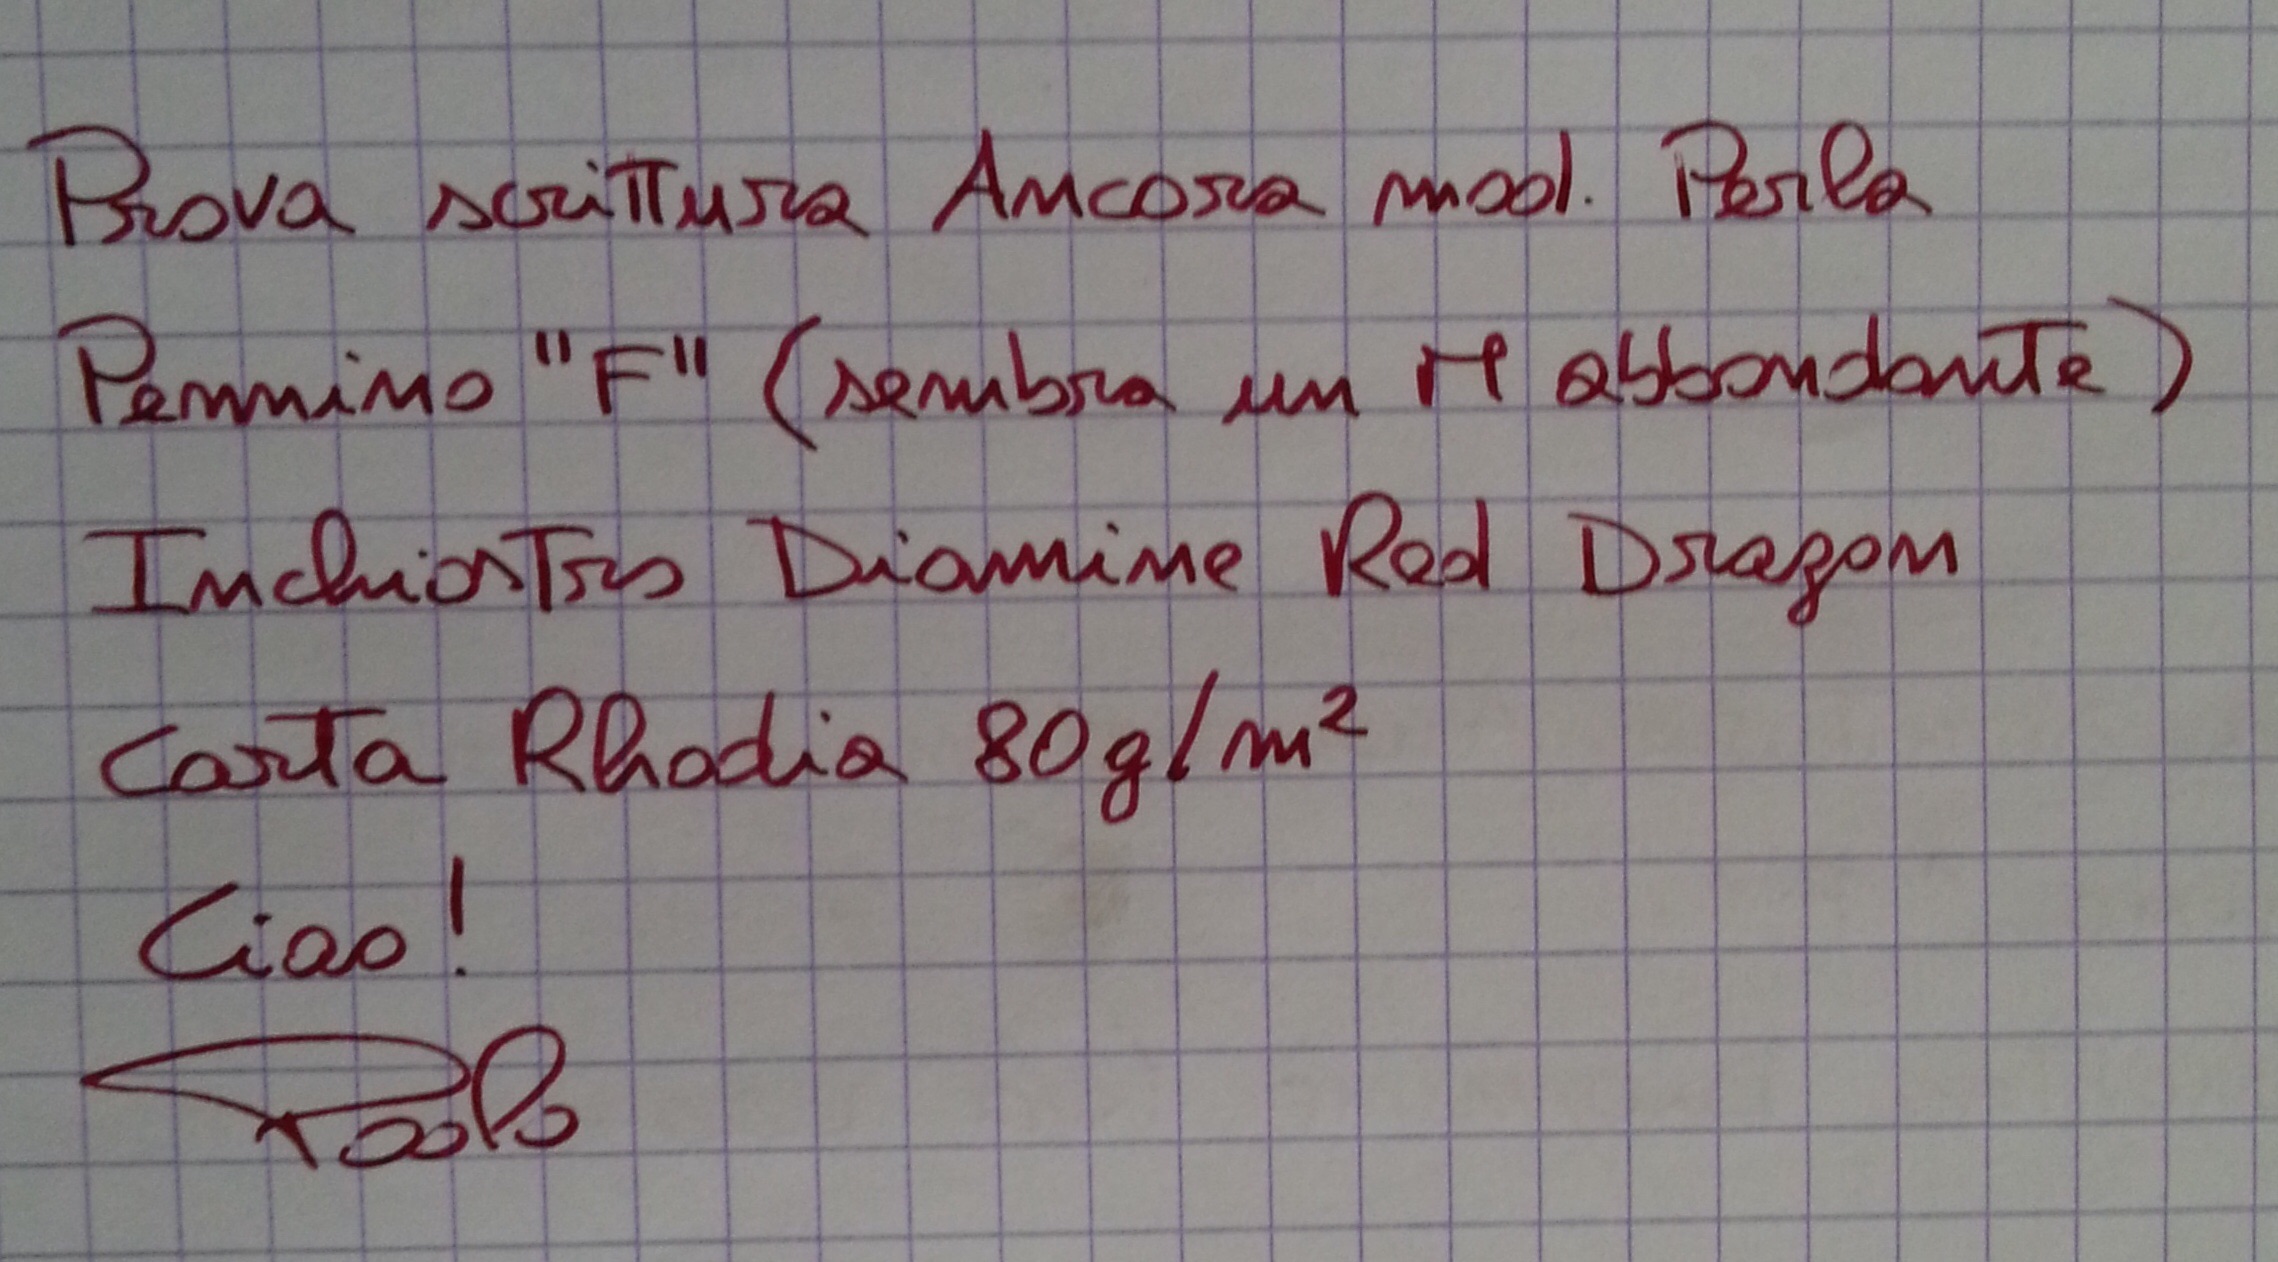 Prova scrittura Ancora mod. Perla
Pennino "F" (sembra un M abbondante)
Inchiostro Diamine Red Dragon
Carta Rhodia 80g/m²
Ciao!
Paolo